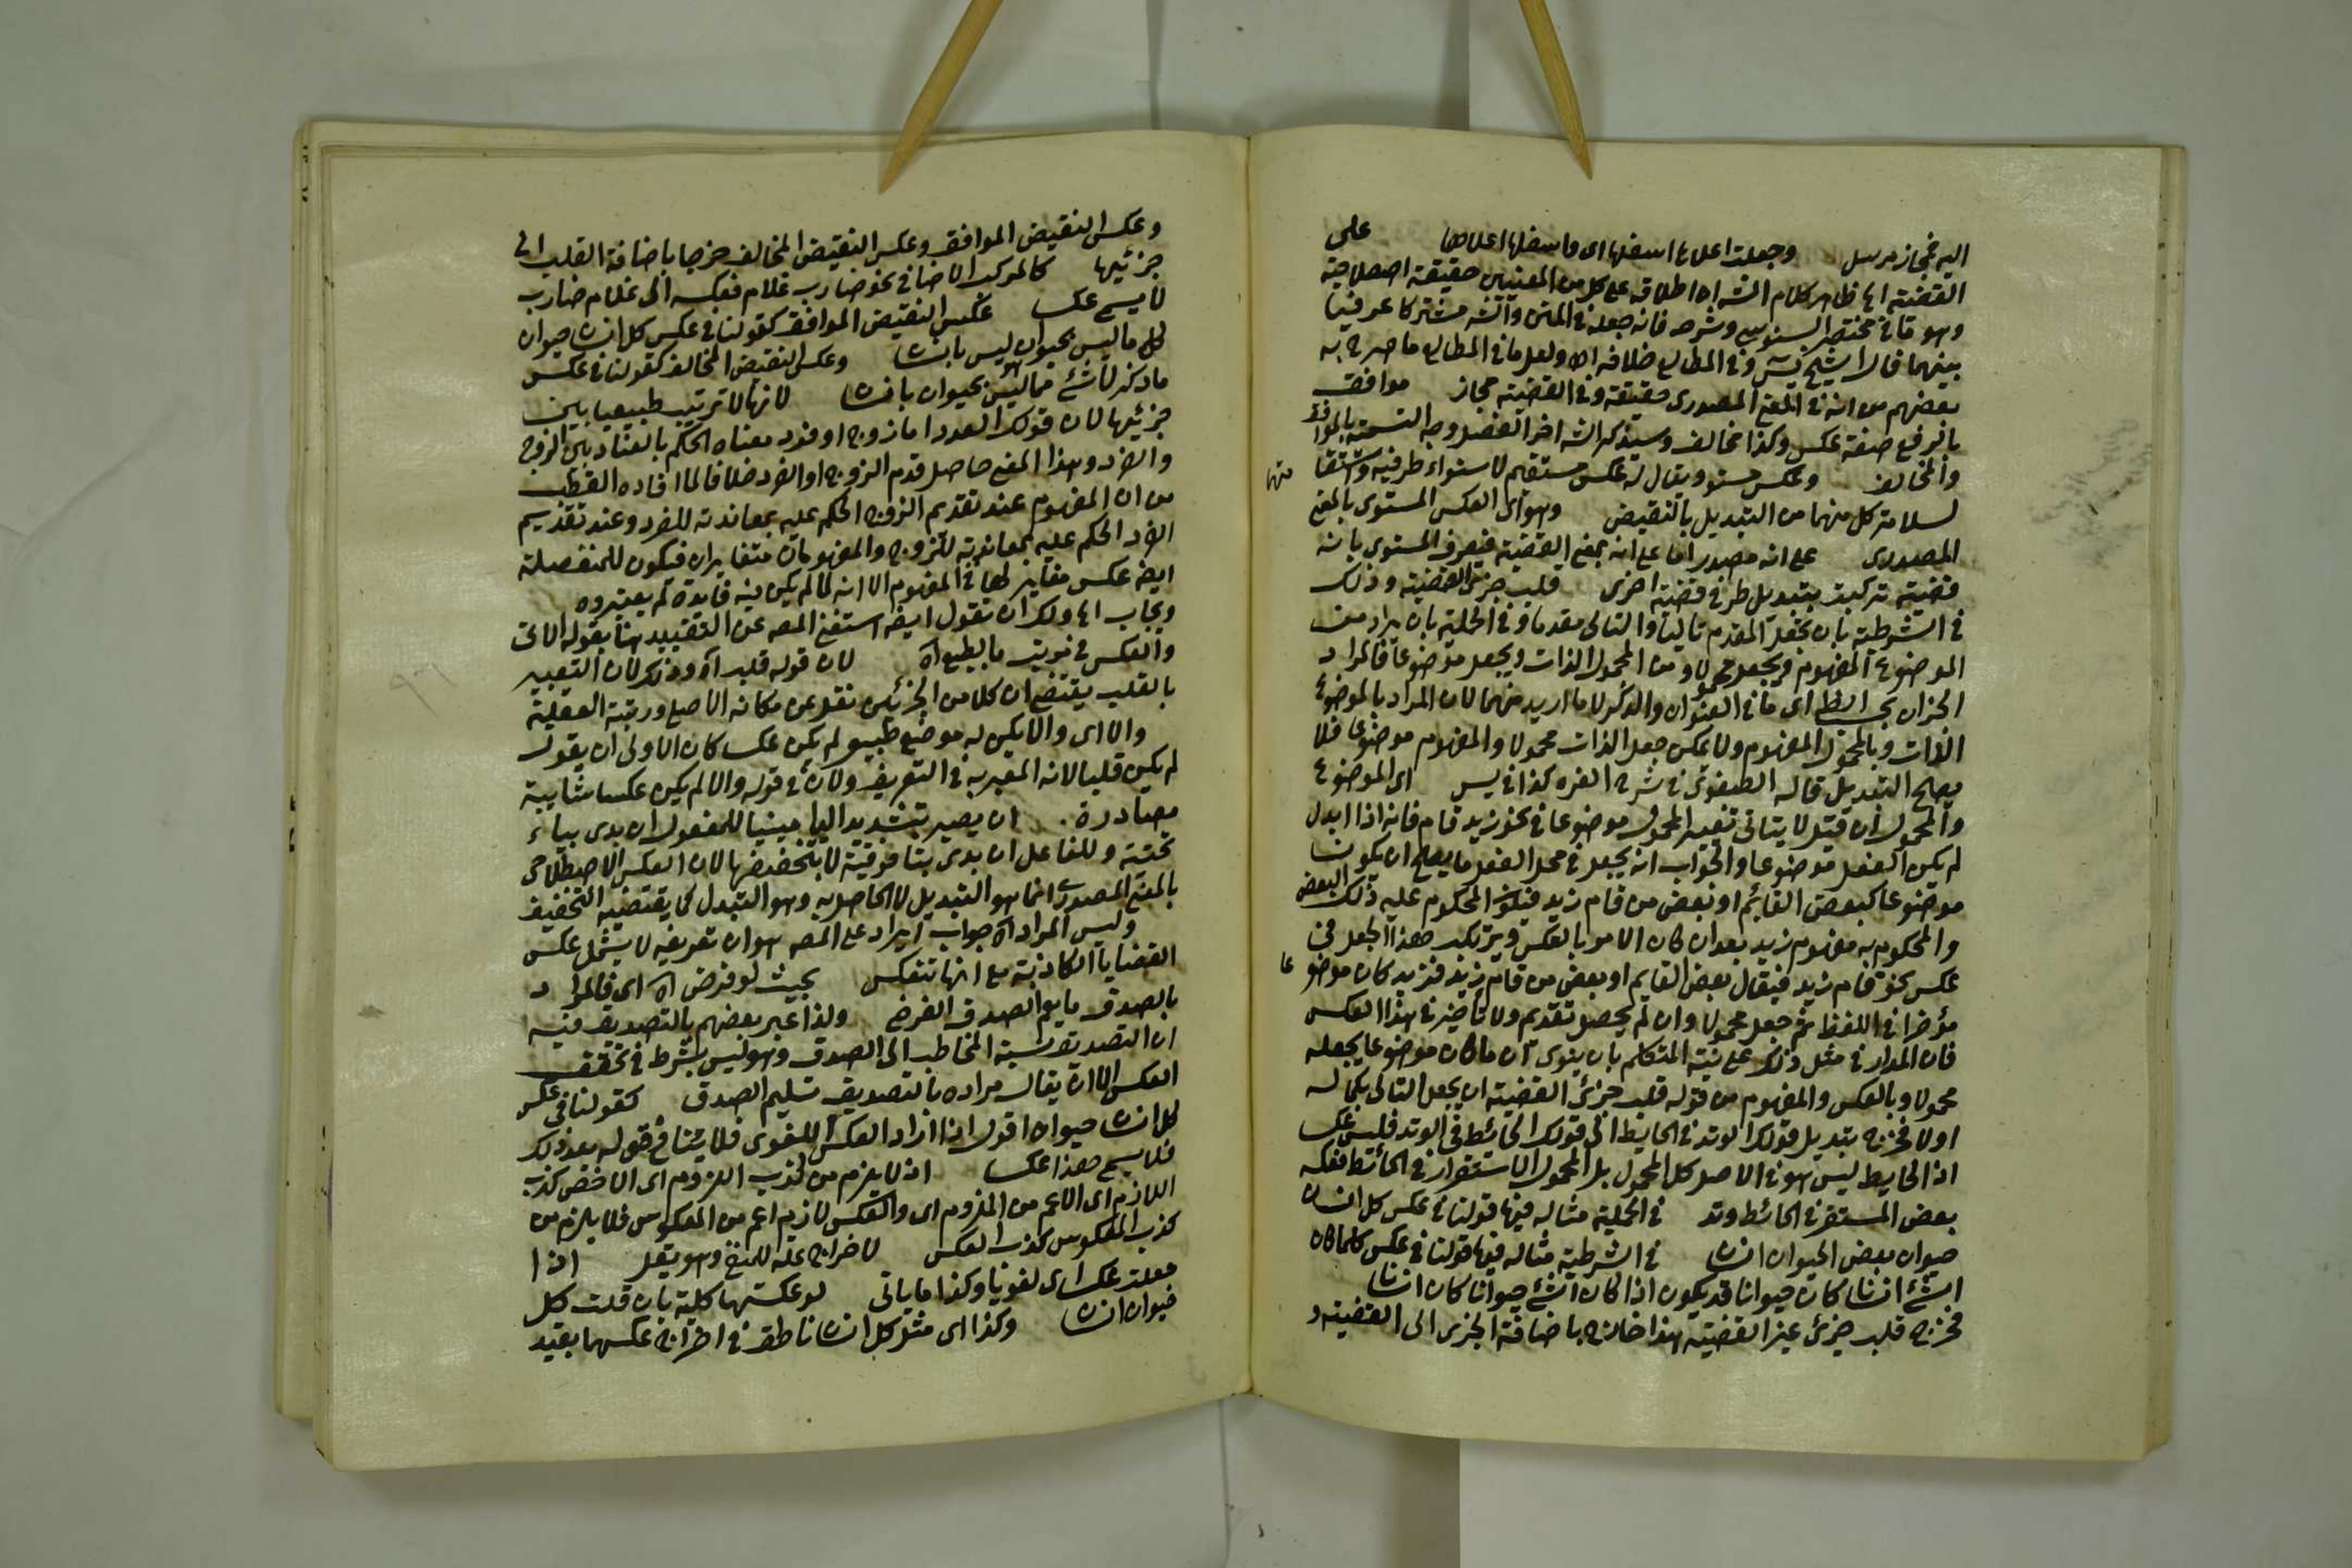 اليه فمجاز مرسل وجعلت اعلاها اسفلها اى واسفلها اعلاها على
القضية اه ظاهر كلام الشه ان اطلاقه على كل من المعنيين حقيقة اصطلاحية
وهو ما فى مختصر السنوسى وشرحه فانه جعله فى المتن والشه مشتركا عرفيا
بينهما قال الشيخ يس وفى المطالع خلافه اه ولعل ما فى المطالع ما صرح به
بعضهم من انه فى المعنى المصدرى حقيقة وفى القضية مجاز موافق
بالرفع صفة عكس وكذا مخالف وسيذكر الشه اخر الفصل وجه التسمية بالموافق
والمخالف وعكس مستو ويقال له عكس مستقيم لاستواء طرفيه واستقامتهما
لسلامة كل منهما من التبديل بالنقيض وهو اى العكس المستوى بالمعنى
المصدرى على انه مصدر اما على انه بمعنى القضية فيعرف المستوى بانه
قضية تركبت بتبديل طرفى قضية اخرى قلب جزئى القضية وذلك
فى الشرطية بان تجعل المقدم تاليا والتالى مقدما وفى الحملية بان يراد من
الموضوع المفهوم ويجعل محمولا ومن المحمول الذات ويجعل موضوعا فالمراد
الجزان بحسب الظ اى ما فى العنوان والذكر لا ما اريد منهما لان المراد بالموضوع
الذات وبالمحمول المفهوم ولا يمكن جعل الذات محمولا والمفهوم موضوعا فلا
يصلح التبديل قاله الصفوى فى شرح الغره كذا فى يس اى الموضوع
والمحمول ان قيل لا يتاتى تصيير المحمول موضوعا فى نحو زيد قام فانه اذا ابدل
لم يكن الفعل موضوعا والجواب انه يجعل فى محل الفعل ما يصلح ان يكون
موضوعا كبعض القائم او بعض من قام زيد فيكون المحكوم عليه ذلك البعض
والمحكوم به مفهوم زيد بعد ان كان الامر بالعكس ويرتكب هذا الجعل فى
عكس نحو قام زيد فيقال بعض القايم او بعض من قام زيد فزيد كان موضوعا
مؤخرا فى اللفظ ثم جعل محمولا وان لم يحصل تقديم ولا تاخير فى هذا العكس
فان المدار فى مثل ذلك على نية المتكلم بان ينوى ان ما كان موضوعا يجعله
محمولا وبالعكس والمفهوم من قوله قلب جزئى القضية ان يجعل التالى بكماله
اولا فخرج تبديل قولك الوتد فى الحايط الى قولك الحائط فى الوتد فليس عكسا
اذ الحايط ليس هو فى الاصل كل المحمول بل المحمول الاستقرار فى الحائط فعكسه
بعض المستقر فى الحائط وتد فى الحملية مثاله فيها قولنا فى عكس كل انسان
حيوان بعض الحيوان انسان فى الشرطية مثاله فيها قولنا فى عكس كلما كان
الشئ انسانا كان حيوانا قد يكون اذا كان الشئ حيوانا كان انسانا
فخرج قلب جزئى غير القضية هذا خارج باضافة الجزئى الى القضية و
وعكس النقيض الموافق وعكس النقيض المخالف خرجا باضافة القلب الى
جزئيها كالمركب الاضافى نحو ضارب غلام فعكسه الى غلام ضارب
لا يسمى عكسا عكس النقيض الموافق كقولنا فى عكس كل انسان حيوان
كل ما ليس بحيوان ليس بانسان وعكس النقيض المخالف كقولنا فى عكس
ما ذكر لا شئ مما ليس بحيوان بانسان لانها لا ترتيب طبيعيا بين
جزئيها لان قولك العدد اما زوج او فرد معناه الحكم بالعناد بين الزوج
والفرد وهذا المعنى حاصل قدم الزوج او الفرد خلافا لما افاده القطب
من ان المفهوم عند تقديم الزوج الحكم عليه بمعاندته للفرد وعند تقديم
الفرد الحكم عليه بمعاندته للزوج والمفهومان متغايران فيكون للمنفصلة
ايضا عكس مغاير لها فى المفهوم الا انه لما لم يكن فيه فايدة لم يعتبروه
ويجاب اه ولك ان تقول ايضا استغنى المصه عن التقييد هنا بقوله الاتى
والعكس فى مرتب بالطبع اه لان قوله قلب اه وذلك لان التعبير
بالقلب يقتضى ان كلا من الجزئين نقل عن مكانه الاصلى ورتبته العقلية
والا اى والا يكن له موضع طبيعى لم يكن عكسا كان الاولى ان يقول
لم يكن قلبا لانه المعبر به فى التعريف ولان فى قوله والا لم يكن عكسا شايبة
مصادرة ان يصير بتشديد اليا مبنيا للمفعول ان بدى بياء
تحتية وللفاعل ان بدى بتا فوقية لا بتخفيفها لان العكس الاصطلاحى
بالمعنى المصدرى انما هو التبديل لا الحاصل به وهو التبدل كما يقتضيه التخفيف
وليس المراد اه جواب ايراد على المصه هو ان تعريفه لا يشمل عكس
القضايا الكاذبة مع انها تنعكس بحيث لو فرض اه اى فالمراد
بالصدق ما يعم الصدق الفرضى ولذا عبر بعضهم بالتصديق وفيه
ان التصديق نسبة المخاطب الى الصدق وهو ليس بشرط فى تحقق
العكس الا ان يقال مراده بالتصديق تسليم الصدق كقولنا فى عكس
كل انسان حيوان اقول اذا اراد العكس اللغوى فلا ينافى قوله بعد ذلك
فلا يسمى هذا عكسا اذ لا يلزم من كذب الملزوم اى الاخص كذب
اللازم اى الاعم من الملزوم اى والعكس لازم اعم من المعكوس فلا يلزم من
كذب المعكوس كذب العكس لاخراج علة للمنفى وهو يقل اذا
جعلت عكسا اى لغويا وكذا ما ياتى لو عكستها كلية بان قلت كل
حيوان انسان وكذا اى مثل كل انسان ناطق فى اخراج عكسها بقيد